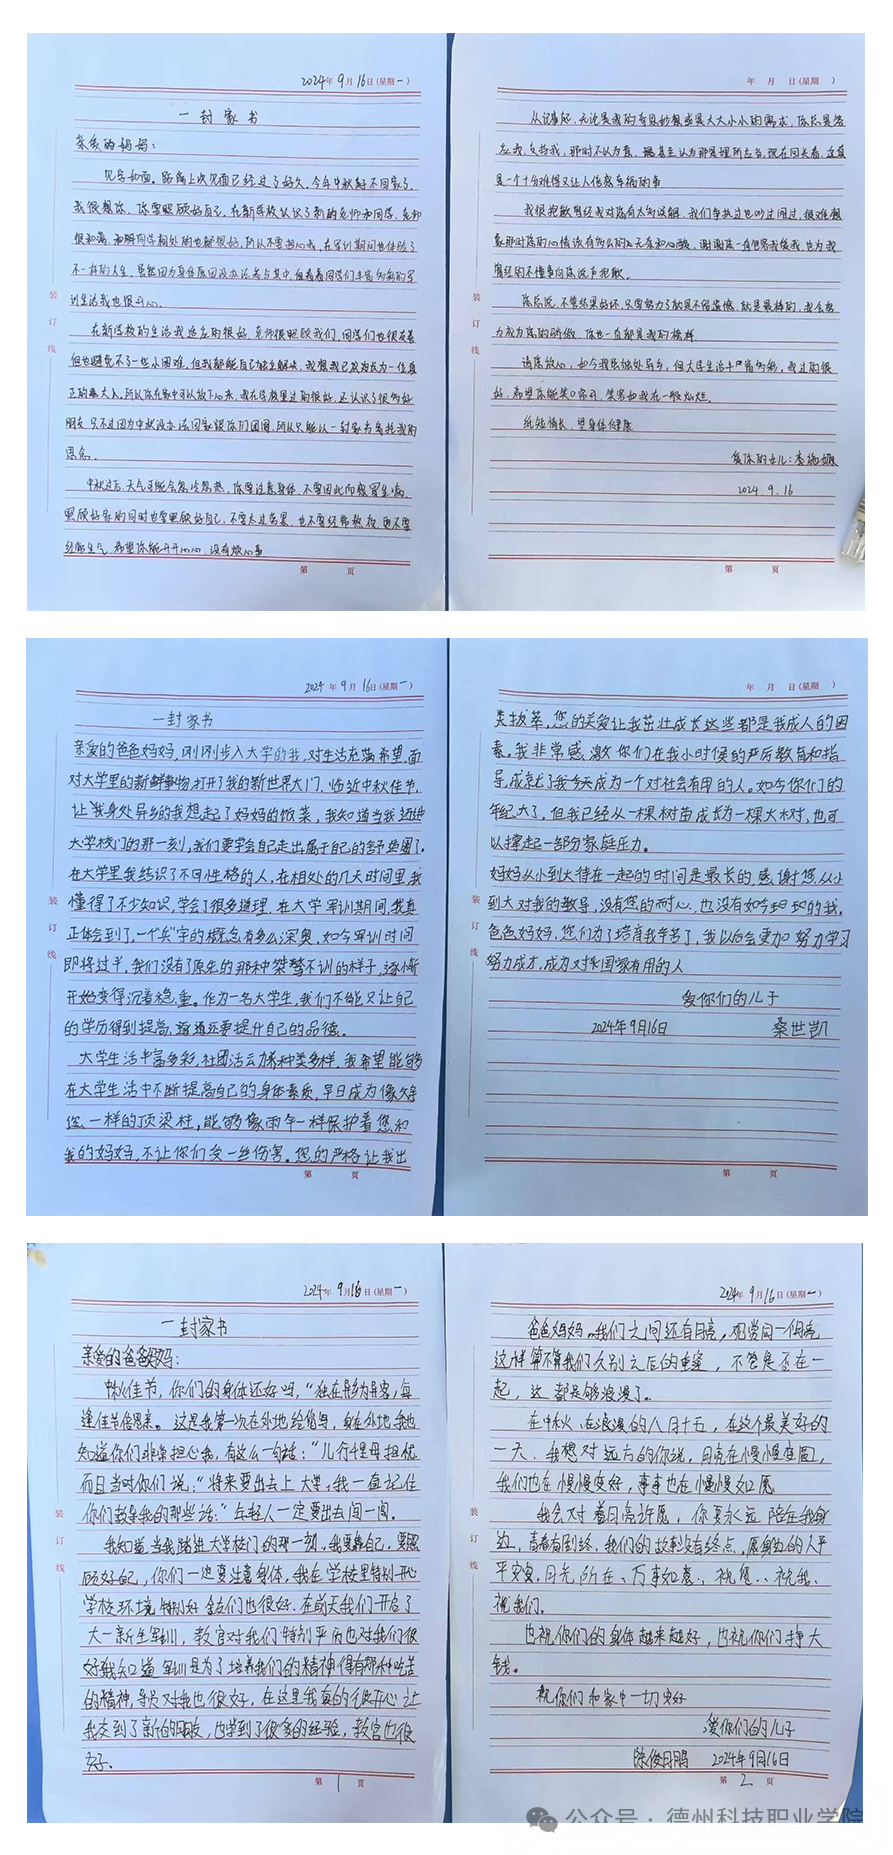 2024年9月16日(星期一)
一封家书
亲爱的妈妈:
见字如面。距离上次见面已经过了好久,今年中秋都不回家了,
我很想你,你要照顾好自己,在新学校认识了新的老师和同学,老师
很和蔼,和同学相处的也都很好,所以不要担心我,在军训期间也体验了
不一样的人生,虽然因为身体原因没办法参与其中,但看着同学们丰富多彩的军
训生活我也很开心。
在新学校的生活我适应的很好,老师很照顾我们,同学们也很友善
但也避免不了一些小困难,但我都能自己独立解决,我想我已成为一位真
正的大人。所以你在家中可以放下心来,我在学校里过的很好,还认识了很多好
朋友,只不过因为中秋没办法回家跟你们团圆,所以只能以一封家书寄托我的
思念。
中秋过后,天气可能会忽冷忽热,你要注意身体,不要因此而感冒生病,
照顾好家的同时也要照顾好自己,不要太过劳累,也不要经常熬夜,更不要
经常生气,希望你能开开心心,没有烦心事
第 页
装
订
线
年 月 日(星期 )
从记事起,无论是我的奇思妙想或是大大小小的需求,你总是答
应我,支持我,那时不以为意,甚至认为那是理所应当,现在回头看,这真
是一个十分难得又让人倍感幸福的事
我很抱歉曾经我对你有太多误解,我们争执过也吵过闹过,很难想
象那时你的心情该有多么的无奈和心酸,谢谢你一直包容我爱我,也为我
曾经的不懂事向你说声抱歉。
你总说,不管结果好坏,只要努力了就是不留遗憾,就是最棒的,我会努
力成为你的骄傲,你也一直都是我的榜样
请你放心,如今我虽独处异乡,但大学生活丰富多彩,我过的很
好,希望你能笑口常开,笑容如我在一般灿烂。
纸短情长,望身体健康
爱你的女儿:李
2024.9.16
第 页
装
订
线
2024年9月16日(星期一)
一封家书
亲爱的爸爸妈妈,刚刚步入大学的我,对生活充满希望,面
对大学里的新鲜事物,打开了我的新世界大门,临近中秋佳节,
让我身处异乡的我想起了妈妈的饭菜,我知道当我迈进
大学校门的那一刻,我们要学会自己走出属于自己的舒适圈了。
在大学里我结识了不同性格的人,在相处的几天时间里,我
懂得了不少知识,学会了很多道理,在大学军训其间,我真
正体会到了,一个"兵"字的概念有多么深奥,如今军训时间
即将过半,我们没有了原先的那种桀骜不训的样子,逐渐
开始变得沉着稳重。作为一名大学生,我们不能只让自己
的学历得到提高,还要提升自己的品德。
大学生活丰富多彩,社团活动各种类多样,我希望能够
在大学生活中不断提高自己的身体素质,早日成为像父亲
您一样的顶梁柱,能够像雨伞一样保护着您和
我的妈妈,不让你们受一丝伤害。您的严格让我出
第 页
装
订
线
年 月 日(星期 )
类拔萃,您的关爱让我茁壮成长这些都是我成人的因
素。我非常感激你们在我小时候的严厉教育和指
导,成就了我今天成为一个对社会有用的人。如今你们的
年纪大了,但我已经从一棵树苗成长为一棵大树,也可
以撑起一部分家庭压力。
妈妈从小到大待在一起的时间是最长的,感谢您从小
到大对我的教导,没有您的耐心,也没有如今现现的我。
爸爸妈妈,您们为了培育我辛苦了,我以后会更加努力学习
努力成才,成为对国家有用的人
爱你们的儿子
2024年9月16日 桑世凯
第 页
装
订
线
2024年9月16日(星期一)
一封家书
亲爱的爸爸妈妈:
中秋佳节,你们的身体还好吗,"独在异乡为异客,每
逢佳节倍思亲。这是我第一次在外地给你写,身在外地我也
知道你们非常担心我,有这么一句话:"儿行千里母担忧
而且当时你们说:"将来要出去上大学,我一直记住
你们教导我的那些话:"年轻人一定要出去闯一闯。
我知道当我踏进大学校门的那一刻,我要靠自己,要照
顾好自己,你们一定要注意身体,我在学校里特别开心
学校环境特别好 舍友们也很好,在前天我们开启了
大一新生军训,教官对我们特别严厉也对我们很
好我知道军训是为了培养我们的精神得有那种吃苦
的精神,导员对我也很好,在这里我真的很开心让
我交到了新的朋友,也学到了很多的经验,教官也很
好.
第 1 页
装
订
线
2024年9月16日(星期一)
爸爸妈妈,我们之间还有月亮,如赏同一個亮
这样算不算我们久别之后的重逢,不管是否在一
起,这都是够浪漫了。
在中秋,在浪漫的八月十五,在这个最美好的
一天,我想对远方的你说,月亮在慢慢变圆,
我们也在慢慢变好,事事也在慢慢如愿
我会对着月亮许愿,你要永远陪在我身
边,青春有别终,我们的故事没有终点,愿身边的人平
平安安,月光所在、万事如意、祝您、祝我、
祝我们。
也祝你们的身体越来越好,也祝你们挣大
钱。
祝你们和家中一切安好
爱你们的儿子
2024年9月16日
第 2 页
装
订
线
公众号·德州科技职业学院